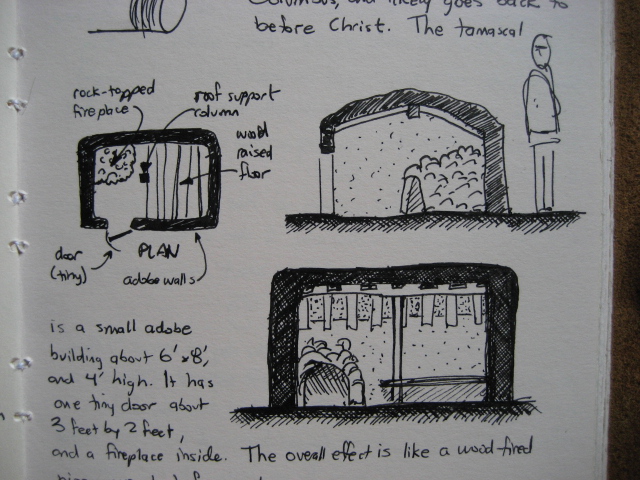 Columbus, and likely goes back to
before Christ. The tamascal
rock-topped
fireplace
roof support
column
wood
raised
floor
door
(tiny)
PLAN
adobe walls
is a small adobe
building about 6'x8',
and 4' high. It has
one tiny door about
3 feet by 2 feet,
and a fireplace inside. The overall effect is like a wood-fired